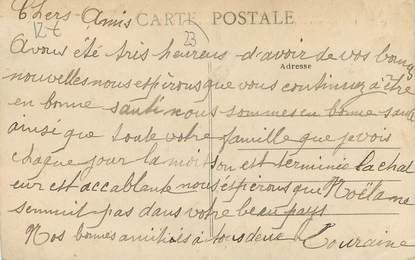 Chers Amis CARTE POSTALE
12t 23
Avons été tres heureux d'avoir de vos bonnes
Adresse
nouvelles nous espérons que vous continuez d'être
en bonne santé nous sommes en bonne santé
ainsi que toute votre famille que je vois
chaque jour la moisson est terminie la chal
eur est accablante nous espérons que
pas dans votre beau pays
Nos bonnes amitiés à tous deux Touraine